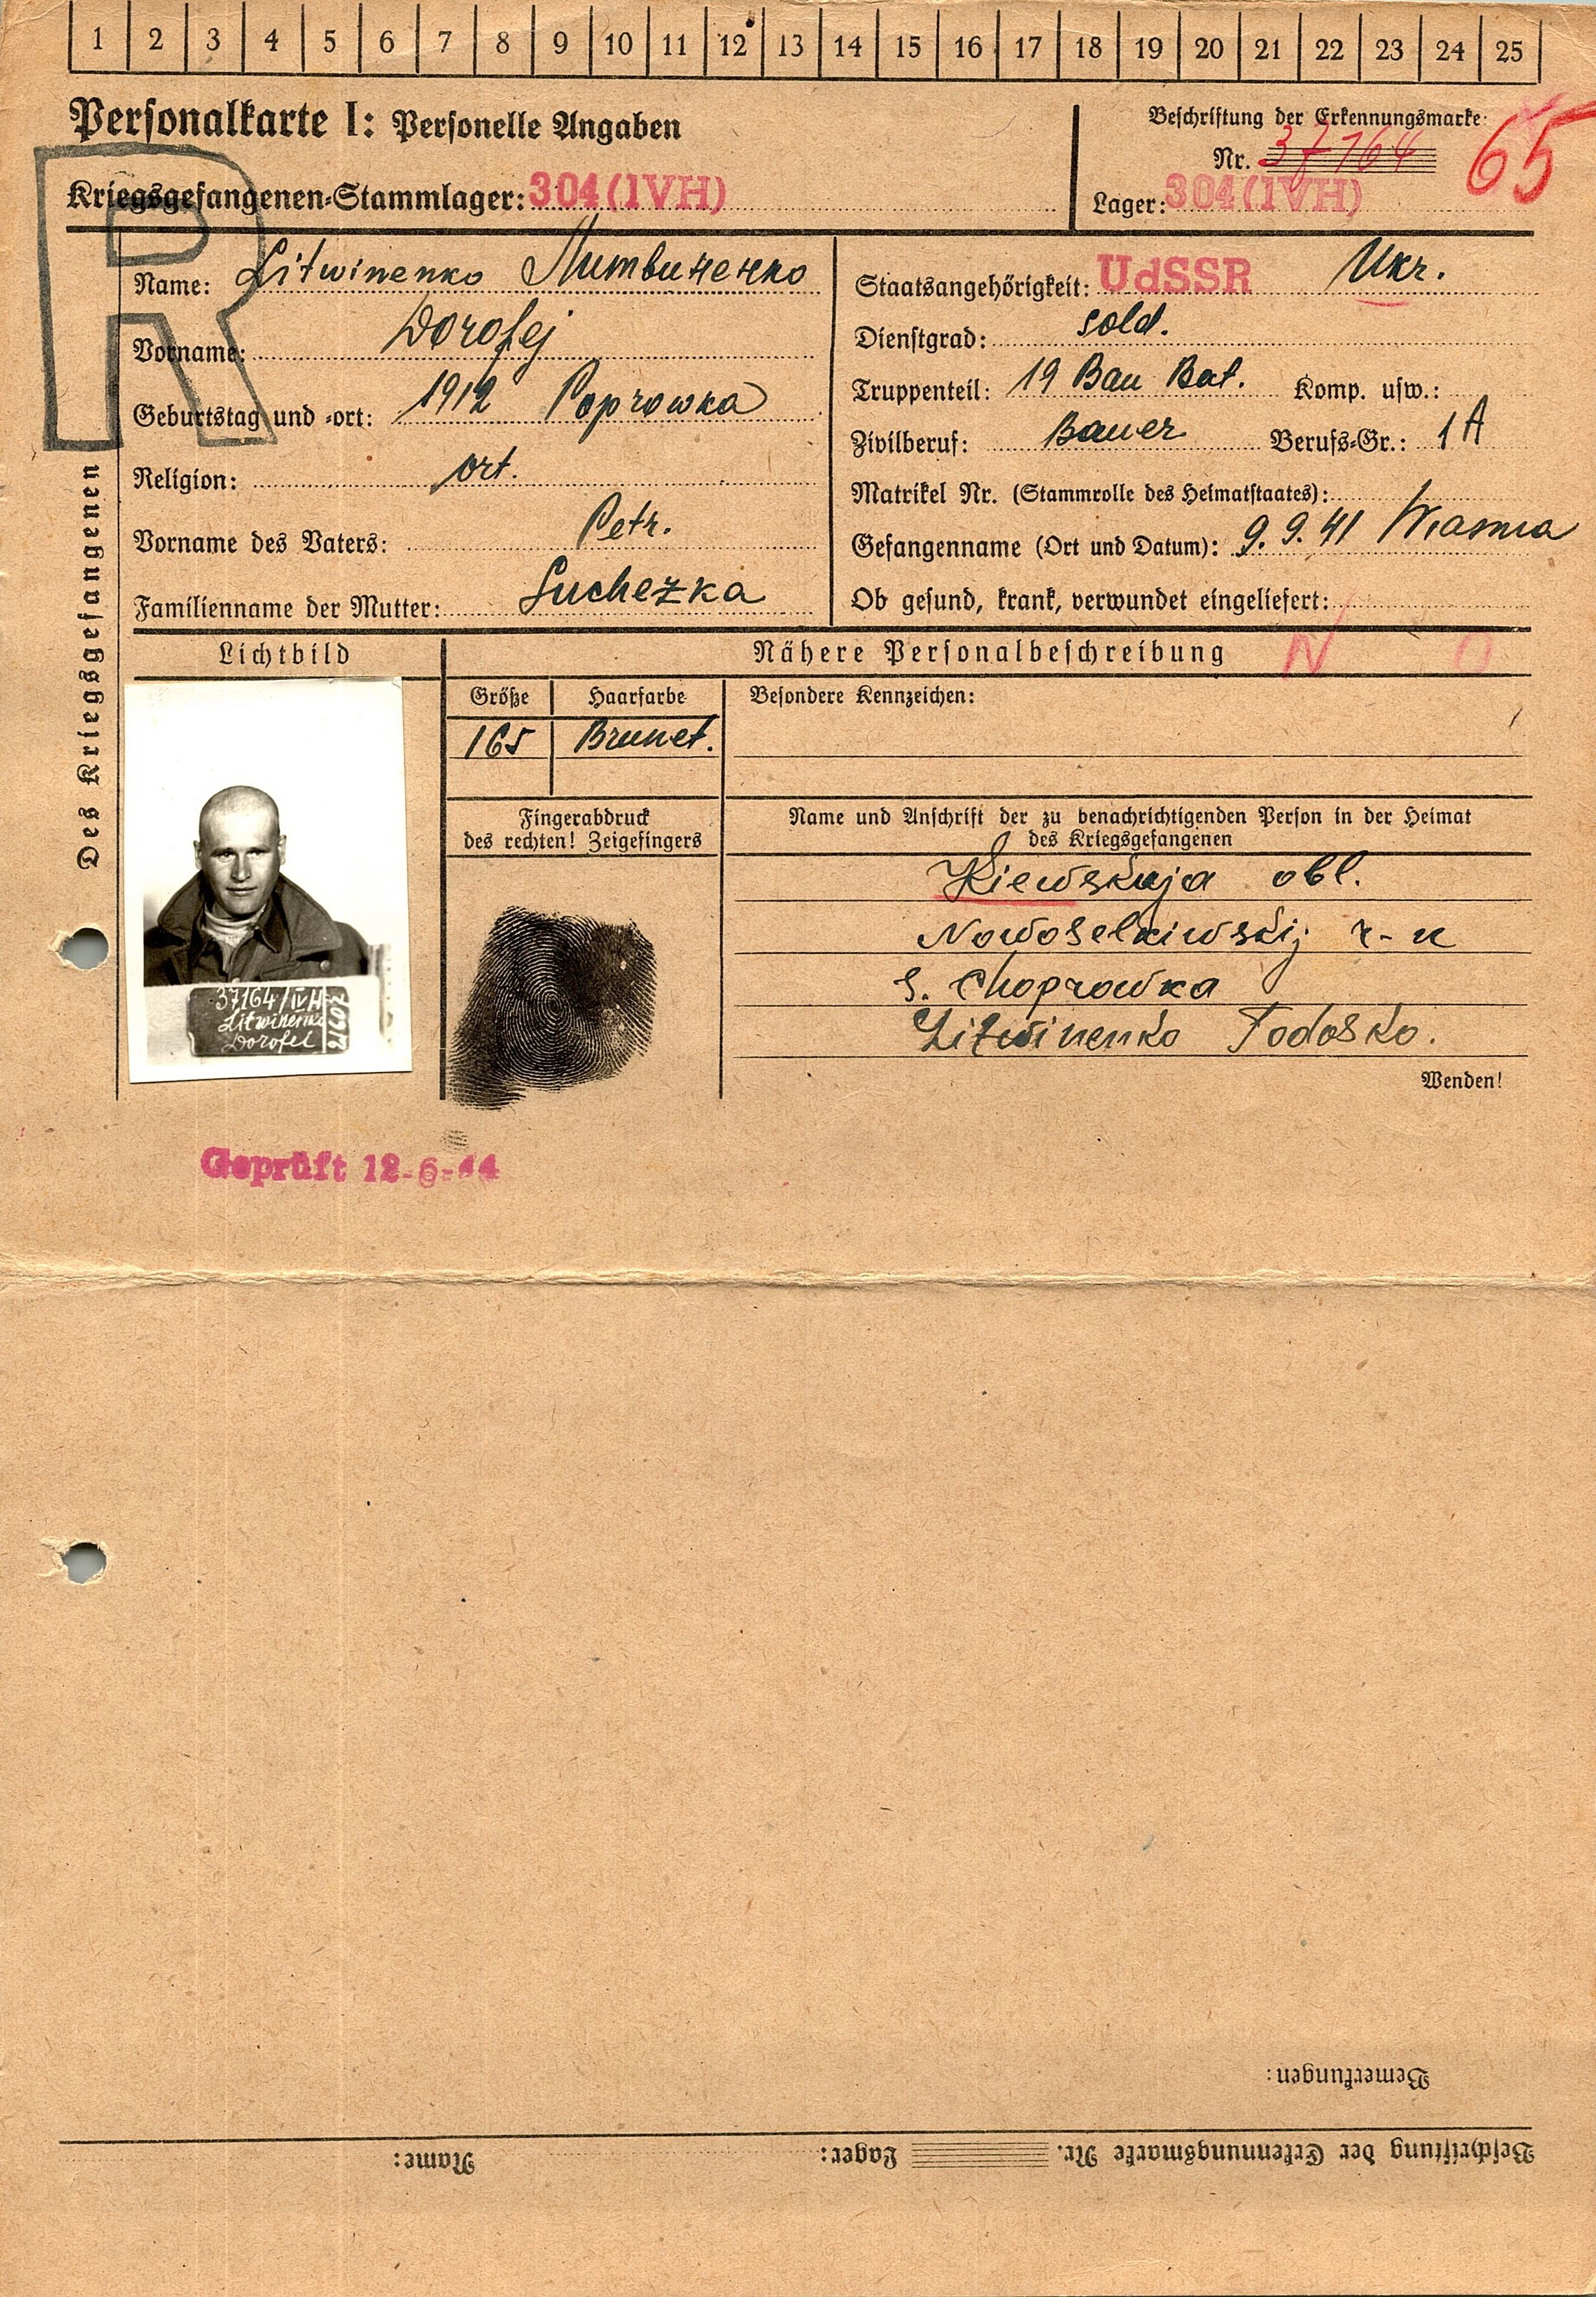 1 2 3 4 5 6 7 8 9 10 11 12 13 14 15 16 17 18 19 20 21 22 23 24 25
Personalkarte I: Personelle Angaben
Beschriftung der Erkennungsmarke:
Nr. 37164
65
Kriegsgefangenen-Stammlager: 304 (IVH)
Lager: 304 (IVH)
R
Des Kriegsgefangenen
Name: Litwinenko Литвиненко
Vorname: Dorofej
Geburtstag und -ort: 1912 Poprowka
Religion: ort.
Vorname des Vaters: Petr.
Familienname der Mutter: Suchezka
Staatsangehörigkeit: UdSSR Ukr.
Dienstgrad: sold.
Truppenteil: 19 Bau Bat. Komp. usw.:
Zivilberuf: Bauer Berufs-Gr.: 1A
Matrikel Nr. (Stammrolle des Heimatstaates):
Gefangenname (Ort und Datum): 9. 9. 41 Wiasma
Ob gesund, krank, verwundet eingeliefert:
Lichtbild
Nähere Personalbeschreibung
N O
Größe Haarfarbe
165 Brunet.
Besondere Kennzeichen:
Fingerabdruck
des rechten! Zeigefingers
Name und Anschrift der zu benachrichtigenden Person in der Heimat
des Kriegsgefangenen
Kiewskaja obl.
Nowoselkiwskij r-n
s. Choprowka
Litwinenko Fodosko.
Wenden!
37164/IVH
Litwinenko
Dorofei
Geprüft 12-6-44
Bemerkungen:
Beschriftung der Erkennungsmarke Nr. Lager: Name: